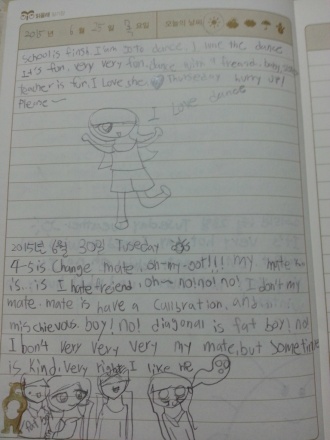 2015년 6월 25일 요일 오늘의 날씨
school is first. I am to dance. I like the dance
It's fun. very very fun. dance with
teacher is fun. I Love she. Thursday hurry up!
Please~
I Love dance
2015년 6월 30일 Tuseday
4-5 is Change mate. oh-my-got!!! my mate
is...is I hate freiend. oh~ no! no! no! I don't my
mate. mate is have a and
mischievous boy! not diagonal is fat boy! no!
I don't very very very my mate, but Sometime
is kind. very right, I like He